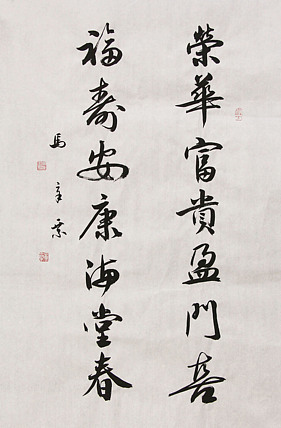 榮華富貴盈門喜
福壽安康海堂春
馬